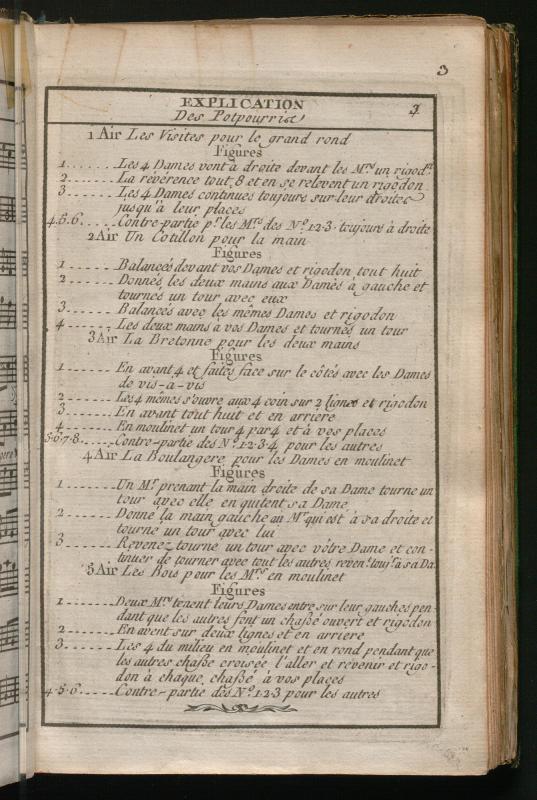 3
EXPLICATION
Des Potpourris
3.
1 Air Les Visites pour le grand rond
Figures
1....... Les 4 Dames vont à droite devant les Mrs un rigodn
2....... La révérence tout 8 et en se relevent un rigodon
3....... Les 4 Dames continues toujours sur leur droites
jusqu'à leur places
4.5.6..... Contre-partie pr. les Mrs des No 1.2.3. toujours à droite
2 Air Un Cotillon pour la main
Figures
1....... Balancés devant vos Dames et rigodon tout huit
2....... Donnés les deux mains aux Dames à gauche et
tournés un tour avec eux
3....... Balancés avec les mêmes Dames et rigodon
4....... Les deux mains à vos Dames et tournés un tour
3 Air La Bretonne pour les deux mains
Figures
1....... En avant 4 et faites face sur le côtés avec les Dames
de vis-a-vis
2....... Les 4 mêmes s'ouvre aux 4 coin sur 2 lignes et rigodon
3....... En avant tout huit et en arriere
4....... En moulinet un tour 4 par 4 et à vos places
5.6.7.8..... Contre-partie des No 1.2.3.4. pour les autres
4 Air La Boulangere pour les Dames en moulinet
Figures
1....... Un Mr prenant la main droite de sa Dame tourne un
tour avec elle en quitent sa Dame
2....... Donne la main gauche au Mr qui est à sa droite et
tourne un tour avec lui
3....... Revenez tourne un tour avec vôtre Dame et con-
tinuer de tourner avec tout les autres reven.t toujrs à sa Da.
5 Air Les Bois pour les Mrs en moulinet
Figures
1....... Deux Mrs tenent leurs Dames entre sur leur gauches pen-
dant que les autres font un chaßé ouvert et rigodon
2....... En avent sur deux lignes et en arriere
3....... Les 4 du milieu en moulinet et en rond pendant que
les autres chaßé croisée l'aller et revenir et rigo-
don à chaque chaßé à vos places
4.5.6..... Contre-partie des No 1.2.3 pour les autres